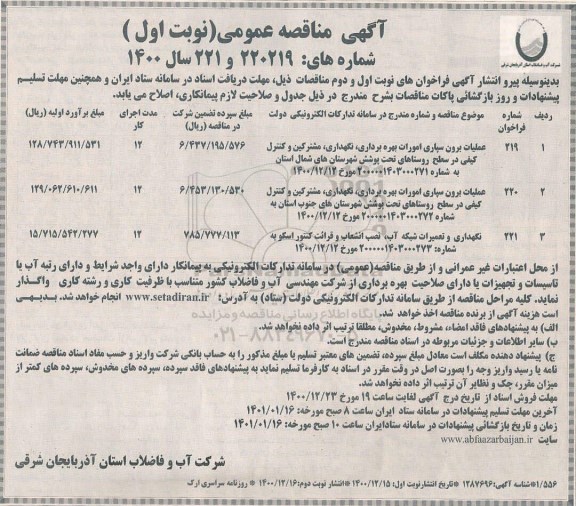 آگهی مناقصه عمومی(نوبت اول )
شماره های: ۲۲۰،۲۱۹ و ۲۲۱ سال ۱۴۰۰
شرکت آب و فاضلاب استان آذربایجان شرقی
بدینوسیله پیرو انتشار آگهی فراخوان های نوبت اول و دوم مناقصات ذیل، مهلت دریافت اسناد در سامانه ستاد ایران و همچنین مهلت تسلیم
پیشنهادات و روز بازگشائی پاکات مناقصات بشرح مندرج در ذیل جدول و صلاحیت لازم پیمانکاری، اصلاح می یابد.
ردیف شماره فراخوان موضوع مناقصه و شماره مندرج در سامانه تدارکات الکترونیکی دولت مبلغ سپرده تضمین شرکت در مناقصه (ریال) مدت اجرای کار مبلغ برآورد اولیه (ریال)
۱ ۲۱۹ عملیات برون سپاری امورات بهره برداری، نگهداری، مشترکین و کنترل ۶/۴۳۷/۱۹۵/۵۷۶ ۱۲ ۱۲۸/۷۴۳/۹۱۱/۵۳۱
کیفی در سطح روستاهای تحت پوشش شهرستان های شمال استان
به شماره ۲۰۰۰۰۰۱۴۰۳۰۰۰۲۷۱ مورخ ۱۴۰۰/۱۲/۱۲
۲ ۲۲۰ عملیات برون سپاری امورات بهره برداری، نگهداری، مشترکین و کنترل ۶/۴۵۳/۱۳۰/۵۳۰ ۱۲ ۱۲۹/۰۶۲/۶۱۰/۶۱۱
کیفی در سطح روستاهای تحت پوشش شهرستان های جنوب استان به
شماره ۲۰۰۰۰۰۱۴۰۳۰۰۰۲۷۲ مورخ ۱۴۰۰/۱۲/۱۲
۳ ۲۲۱ نگهداری و تعمیرات شبکه آب، نصب انشعاب و قرائت کنتور اسکو به ۷۸۵/۷۷۷/۱۱۳ ۱۲ ۱۵/۷۱۵/۵۴۲/۲۷۷
شماره: ۲۰۰۰۰۰۱۴۰۳۰۰۰۲۷۳ مورخ ۱۴۰۰/۱۲/۱۲
از محل اعتبارات غیر عمرانی و از طریق مناقصه (عمومی) در سامانه تدارکات الکترونیکی به پیمانکار دارای واجد شرایط و دارای رتبه آب یا
تاسیسات و تجهیزات یا دارای صلاحیت بهره برداری از شرکت مهندسی آب و فاضلاب کشور متناسب با ظرفیت کاری و رشته کاری واگذار
نماید. کلیه مراحل مناقصه از طریق سامانه تدارکات الکترونیکی دولت (ستاد) به آدرس: www.setadiran.ir انجام خواهد شد. بدیهی
است هزینه آگهی از برنده مناقصه اخذ خواهد شد.
الف) به پیشنهادهای فاقد امضاء، مشروط، مخدوش، مطلقا ترتیب اثر داده نخواهد شد.
ب) سایر اطلاعات و جزئیات مربوطه در اسناد مناقصه مندرج است.
ج) پیشنهاد دهنده مکلف است معادل مبلغ سپرده، تضمین های معتبر تسلیم یا مبلغ مذکور را به حساب بانکی شرکت واریز و حسب مفاد اسناد مناقصه ضمانت
نامه یا رسید واریز وجه را بصورت اصل در وقت مقرر در اسناد به کارفرما تسلیم نماید به پیشنهادهای فاقد سپرده، سپرده های مخدوش، سپرده های کمتر از
میزان مقرر، چک و نظایر آن ترتیب اثر داده نخواهد شد.
مهلت فروش اسناد از تاریخ درج آگهی لغایت ساعت ۱۹ مورخ ۱۴۰۰/۱۲/۲۳
آخرین مهلت تسلیم پیشنهادات در سامانه ستاد ایران ساعت ۸ صبح مورخه: ۱۴۰۱/۰۱/۱۶
زمان و تاریخ بازگشائی پیشنهادات در سامانه ستادایران ساعت ۱۰ صبح مورخه: ۱۴۰۱/۰۱/۱۶
سایت www.abfaazarbaijan.ir
شرکت آب و فاضلاب استان آذربایجان شرقی
۱/۵۵۶ *شناسه آگهی: ۱۲۸۷۶۹۶ *تاریخ انتشارنوبت اول: ۱۴۰۰/۱۲/۱۵ *انتشار نوبت دوم:۱۴۰۰/۱۲/۱۶ * روزنامه سراسری ارک